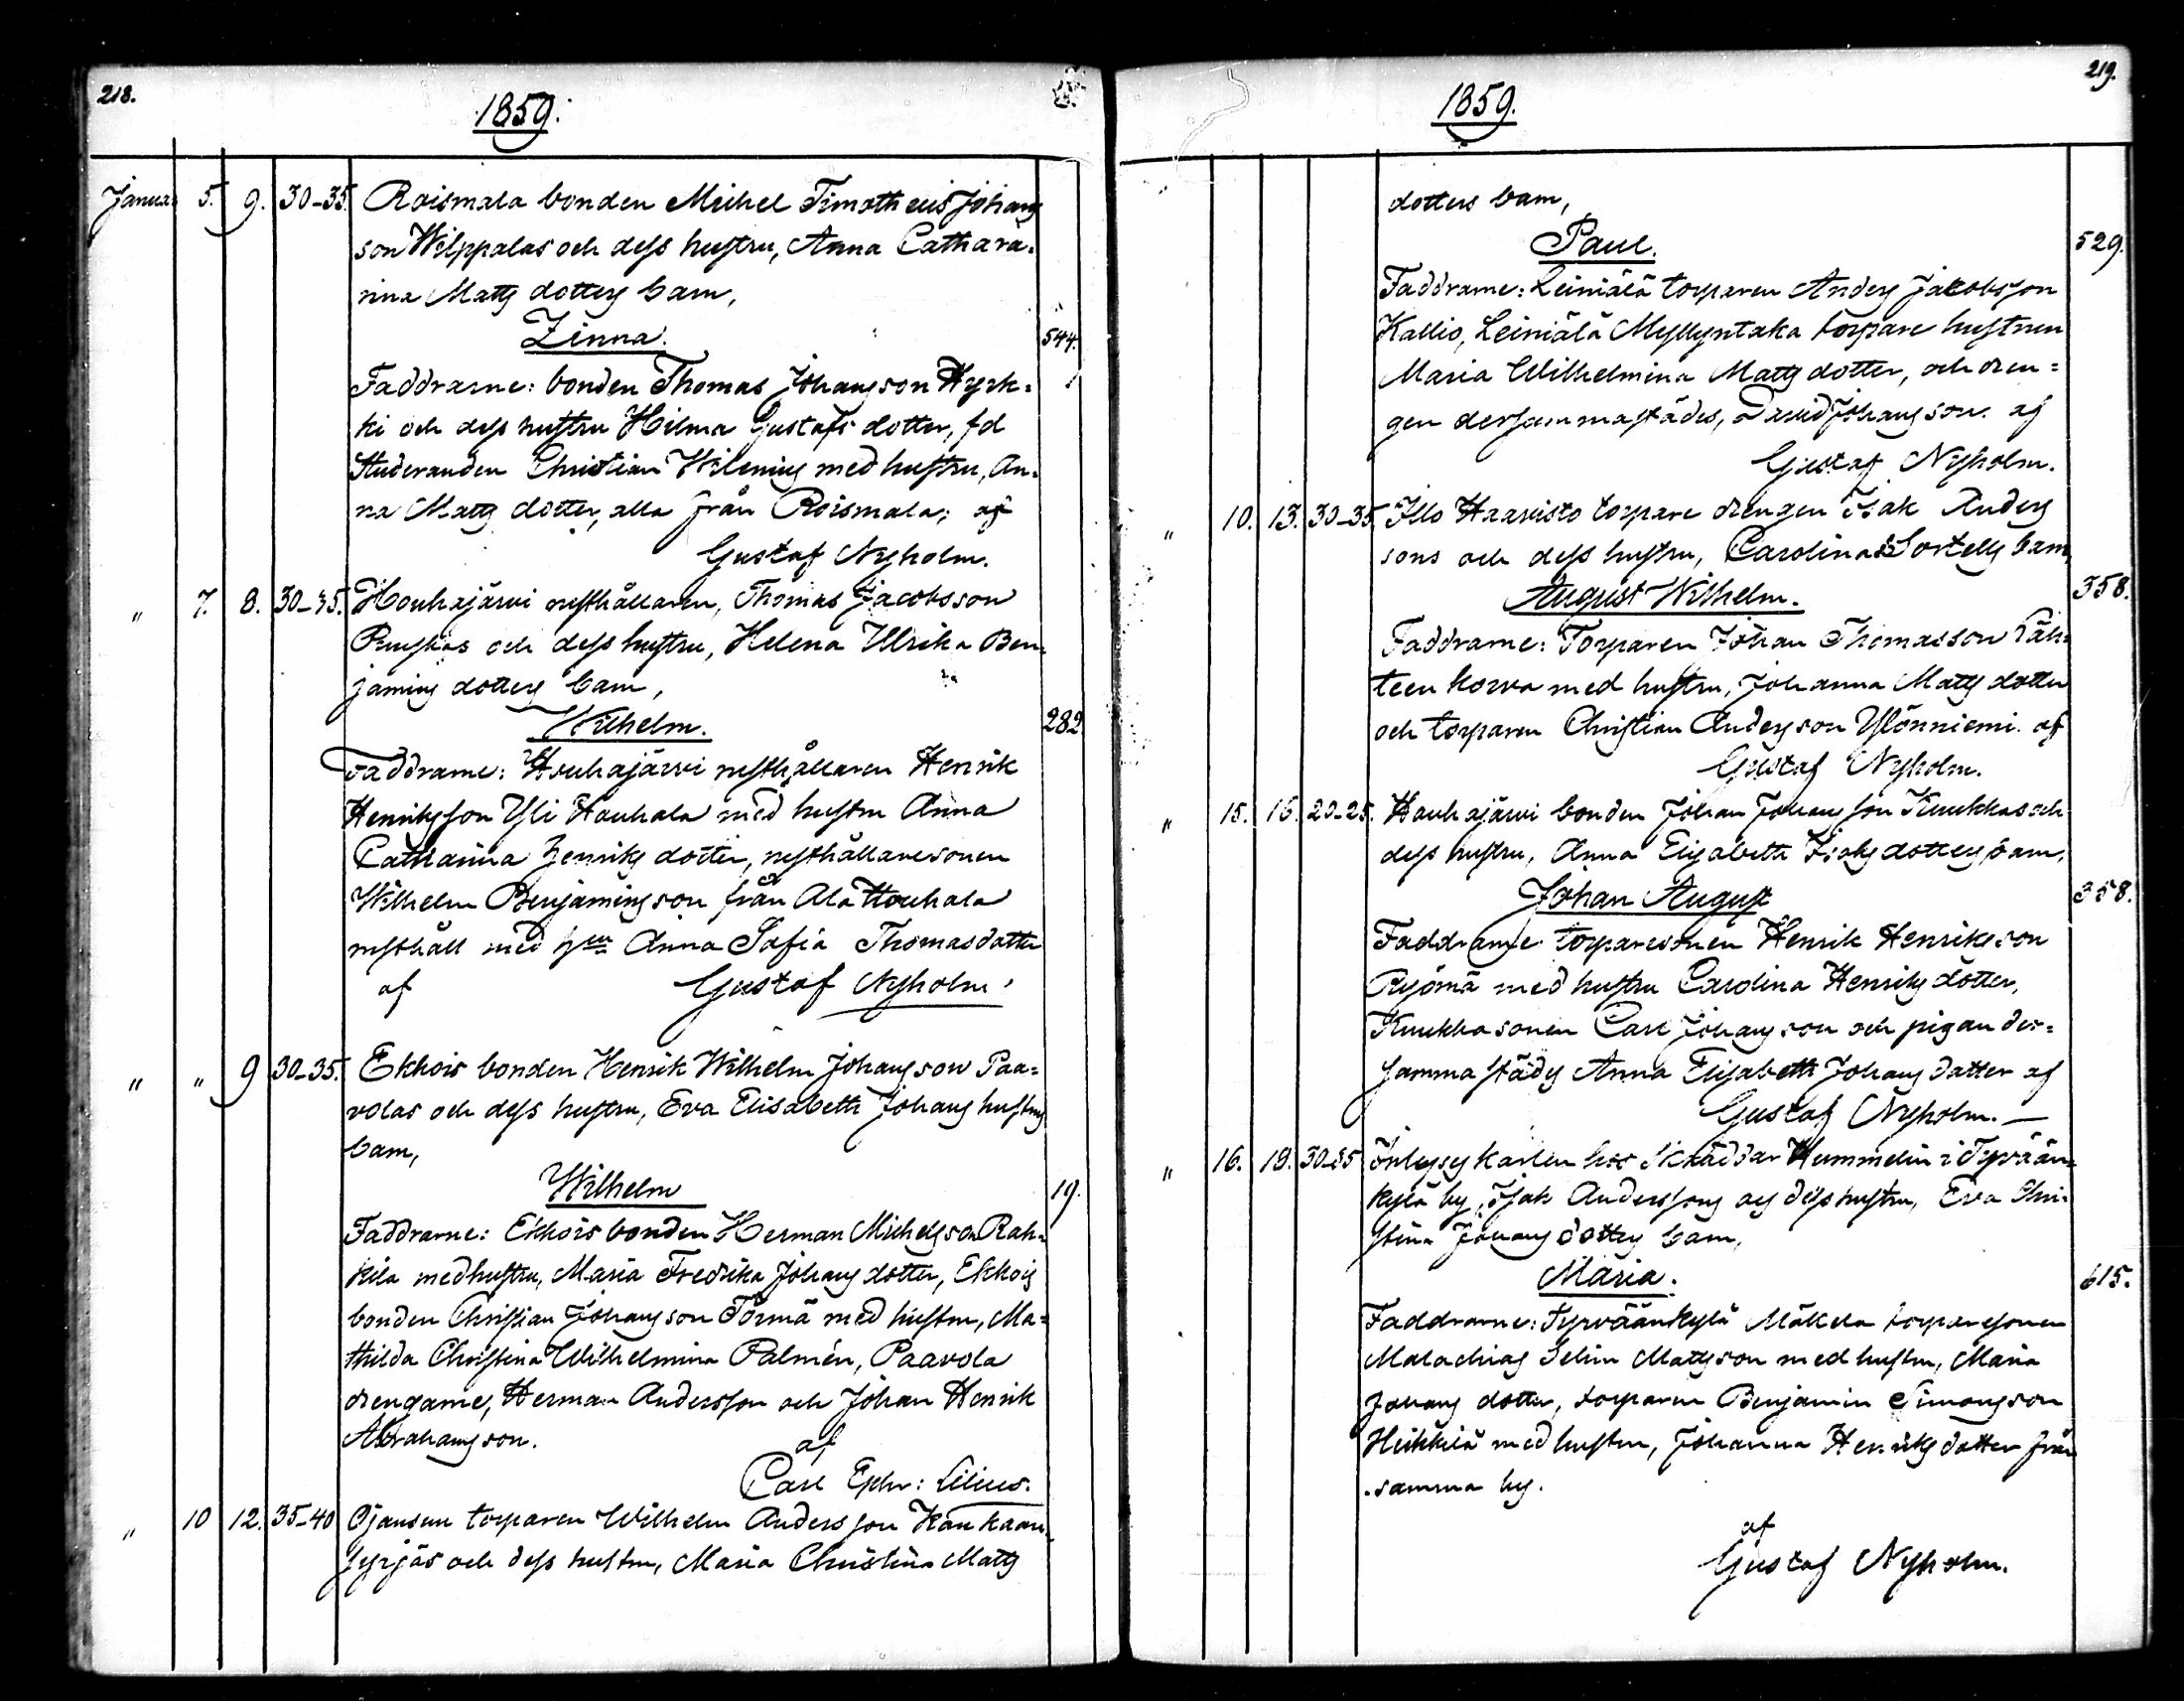 218.
1859.
Januar 5. 9. 30-35. Roismala bonden Michel Timotheus Johans
son Wilppalas och dess hustru, Anna Cathara=
rina Matts dotters barn,
Zinna. 544.
Faddrarne: bonden Thomas Johansson Hyrk=
ki och dess hustru Hilma Gustafs dotter, fd
Studeranden Christian Wilenius med hustru, An=
na Matts dotter, alla från Roismala; af
Gustaf Nyholm.
" 7. 8. 30-35. Houhajärvi rusthållaren, Thomas Jacobsson
och dess hustru, Helena Ulrika Ben=
jamins dotters barn,
Wilhelm. 282.
Faddrarne: Houhajärvi rusthållaren Henrik
Henriksson Yli Houhala med hustru Anna
Catharina Henriks dotter, rusthållaresonen
Wilhelm Benjaminsson från Ala Houhala
rusthåll med Anna Sofia Thomasdotter
af Gustaf Nyholm.
" " 9 30-35. Ekkois bonden Henrik Wilhelm Johansson Paa=
volas och dess hustru, Eva Elisabeth Johans hustrus
barn,
Wilhelm 19.
Faddrarne: Ekkois bonden Herman Michelsson Rah=
kila med hustru, Maria Fredrika Johans dotter, Ekkois
bonden Christian Johansson Törmä med hustru, Ma=
thilda Christina Wilhelmina Palmén, Paavola
drengarne, Herman Andersson och Johan Henrik
Abrahamsson. af
Carl Ephr: Lilius.
" 10 12. 35-40 Ojansuu torparen Wilhelm Andersson Kankaan
syrjäs och dess hustru, Maria Christina Matts
219.
1859.
dotters barn,
Paul. 529.
Faddrarne: Leiniälä torparen Anders Jacobsson
Kallio, Leiniälä Myllyntaka torpare hustrun
Maria Wilhelmina Matts dotter, och dren=
gen dersammastädes, David Johansson. af
Gustaf Nyholm.
" 10. 13. 30-35. Illo Haavisto torpare drengen Isak Anders
sons och dess hustru, Carolina Sortells barn
August Wilhelm. 358.
Faddrarne: Torparen Johan Thomasson Läh=
teen korva med hustru, Johanna Matts dotter
och torparen Christian Andersson Ylönniemi. af
Gustaf Nyholm.
" 15. 16. 20-25. Houhajärvi bonden Johan Johansson Kuukkas och
dess hustru, Anna Elisabeth Isaks dotters barn,
Johan August 358.
Faddrarne torparesonen Henrik Henriksson
Ryömä med hustru Carolina Henriks dotter,
Kuukka sonen Carl Johansson och pigan der=
sammastädes Anna Elisabeth Johans dotter af
Gustaf Nyholm. —
" 16. 19. 30-35 Inhyses karlen hos Skräddar Hummelin i Tyrvään
kylä by, Isak Anderssons och dess hustru, Eva Chri=
stina Johans dotters barn,
Maria. 615.
Faddrarne: Tyrväänkylä Mäkelä torparesonen
Malachias Selim Mattsson med hustru, Maria
Johans dotter, torparen Benjamin Simonsson
Heikkilä med hustru, Johanna Henriks dotter från
samma by.
af
Gustaf Nyholm.